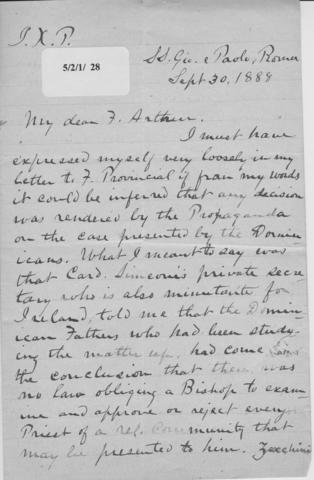 J. X. P.
5/2/1/ 28
SS. Gio. e Paolo, Rome
Sept 30, 1888
My dear F. Arthur.
I must have
expressed myself very loosely in my
letter to F. Provincial if from my words
it could be inferred that any decision
was rendered by the Propaganda
on the case presented by the Domin-
icans. What I meant to say was
that Card. Simeoni's private secre-
tary who is also minutante for
Ireland, told me that the Domin-
ican Fathers who had been study-
ing the matter up, had come
the conclusion that there was
no law obliging a Bishop to exam-
ine and approve or reject every
Priest of a rel. Community that
may be presented to him. Zecchini